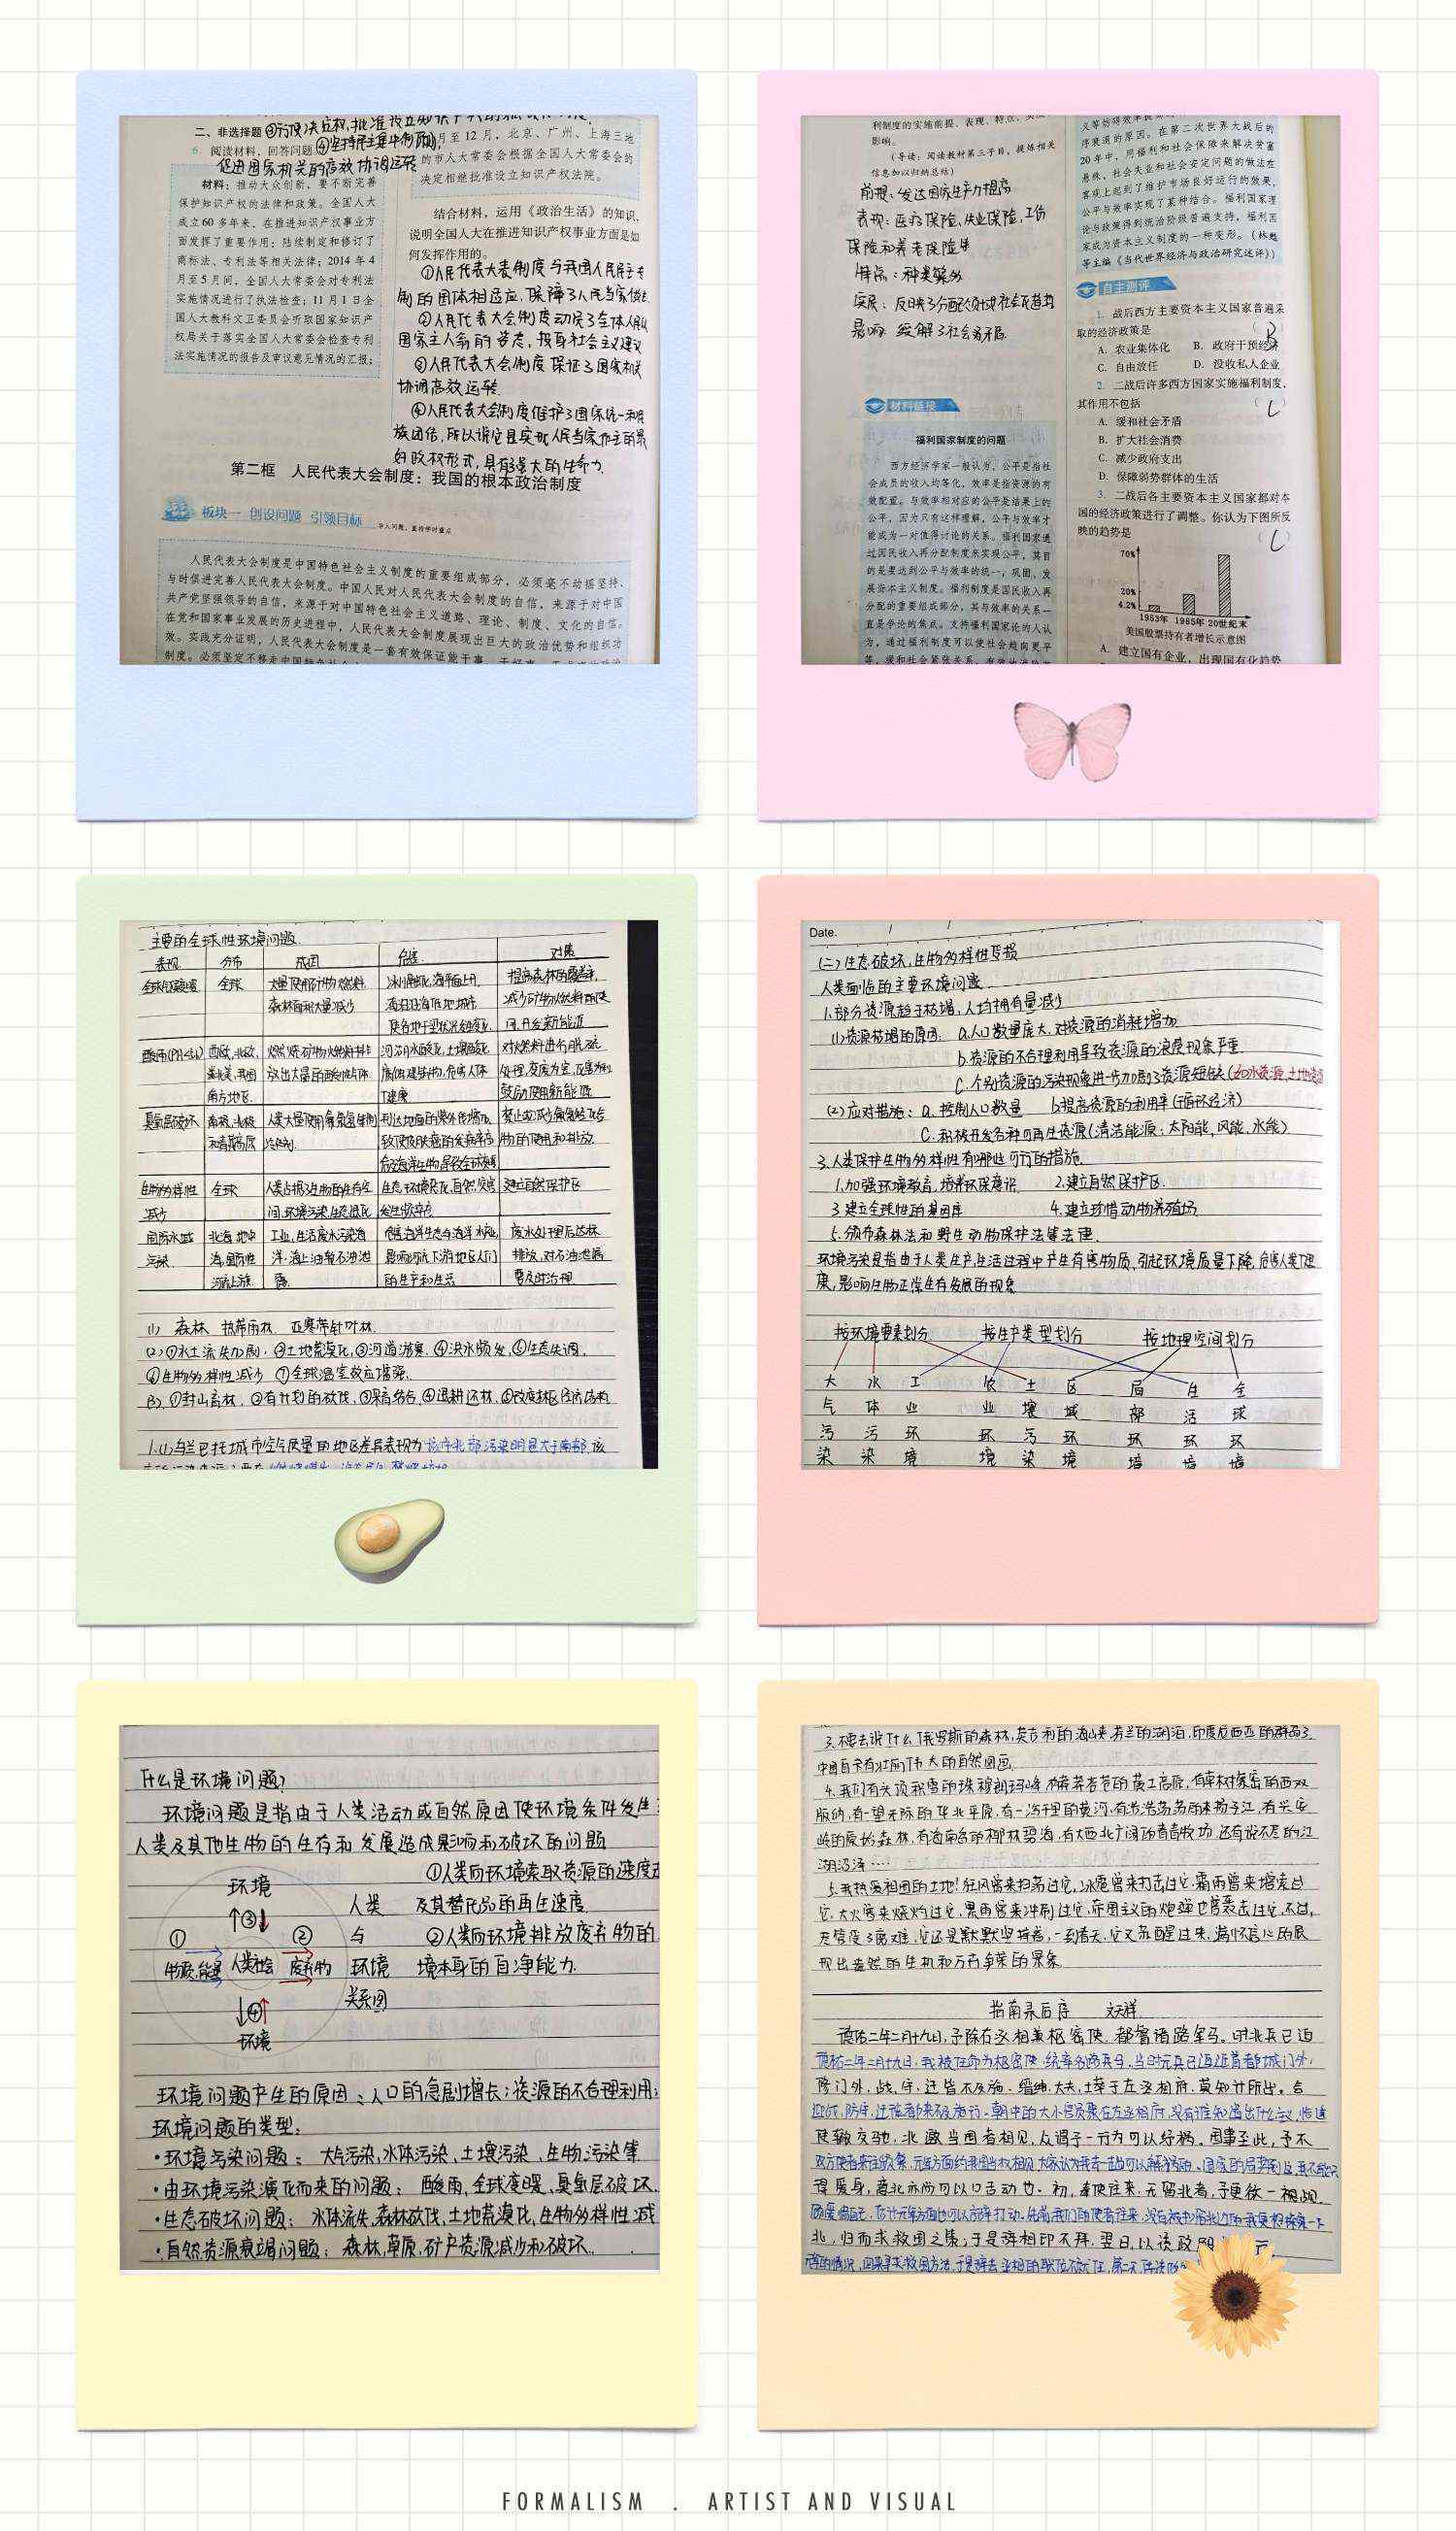 二、非选择题
6. 阅读材料，回答问题
④坚持民主集中制原则，
促进国家机关的高效协调运转
材料：推动大众创新，要不断完善
保护知识产权的法律和政策。全国人大
成立60多年来，在推进知识产权事业方
面发挥了重要作用：陆续制定和修订了
商标法、专利法等相关法律；2014年4
月至5月间，全国人大常委会对专利法
实施情况进行了执法检查；11月1日全
国人大教科文卫委员会听取国家知识产
权局关于落实全国人大常委会检查专利
法实施情况的报告及审议意见情况的汇报；
月至12月，北京、广州、上海三地
的市人大常委会根据全国人大常委会的
决定相继批准设立知识产权法院。
结合材料，运用《政治生活》的知识，
说明全国人大在推进知识产权事业方面是如
何发挥作用的。
①人民代表大表制度与我国人民民主专
制的国体相适应，保障了人民当家做主
②人民代表大会制度动员了全体人民以
国家主人翁的姿态，投身社会主义建设
③人民代表大会制度保证了国家机关
协调高效运转
④人民代表大会制度维护了国家统一和民
族团结，所以说它是实现人民当家作主的最
好政权形式，具有强大的生命力.
第二框 人民代表大会制度：我国的根本政治制度
板块一 创设问题 引领目标
人民代表大会制度是中国特色社会主义制度的重要组成部分，必须毫不动摇坚持、
与时俱进完善人民代表大会制度。中国人民对人民代表大会制度的自信，来源于对中国
共产党坚强领导的自信，来源于对中国特色社会主义道路、理论、制度、文化的自信。
在党和国家事业发展的历史进程中，人民代表大会制度展现出巨大的政治优势和组织功
效。实践充分证明，人民代表大会制度是一套有效保证能干事、干好事、
利制度的实施前提、表现、特点、实质
影响。
（导读：阅读教材第三子目，提炼相关
信息加以归纳总结）
前提：发达国家生产力提高
表现：医疗保险，失业保险，工伤
保险和养老保险等
特点：种类繁多
影响 缓解了社会矛盾
材料链接
福利国家制度的问题
西方经济学家一般认为，公平是指社
会成员的收入均等化，效率是指资源的有
效配置。与效率相对应的公平是结果上的
公平，因为只有这样理解，公平与效率才
能成为一对值得讨论的关系。福利国家通
过国民收入再分配制度来实现公平，其目
的是要达到公平与效率的统一，巩固、发
展资本主义制度。福利制度是国民收入再
分配的重要组成部分，其与效率的关系一
直是争论的焦点。支持福利国家论的人认
为，通过福利制度可以使社会趋向更平
等，缓和社会紧张关系，
序衰退的原因。在第二次世界大战后的
20年中，用福利和社会保障来解决贫富
悬殊、社会失业和社会安定问题的做法在
客观上起到了维护市场良好运行的效果，
公平与效率实现了某种结合。福利国家理
论与政策得到统治阶级普遍支持，福利国
家成为资本主义制度的一种变形。（林
等主编《当代世界经济与政治研究述评》）
自主测评
1. 战后西方主要资本主义国家普遍采
取的经济政策是 （B
A. 农业集体化 B. 政府干预经济
C. 自由放任 D. 没收私人企业
2. 二战后许多西方国家实施福利制度，
其作用不包括 （C
A. 缓和社会矛盾
B. 扩大社会消费
C. 减少政府支出
D. 保障弱势群体的生活
3. 二战后各主要资本主义国家都对本
国的经济政策进行了调整。你认为下图所反
映的趋势是 （C
70%
20%
4.2%
1953年 1985年 20世纪末
美国股票持有者增长示意图
A. 建立国有企业，出现国有化趋势
主要的全球性环境问题.
表现 分布 成因 危害 对策
全球气候变暖 全球 大量使用矿物燃料 冰川融化，海平面上升， 提高森林的覆盖率，
森林面积大量减少 淹没沿海低地城市 减少矿物燃料的使
用，开发新能源
酸雨 西欧，北欧， 燃烧矿物燃料排 河湖水酸化，土壤酸化 对燃料进行脱硫
放出大量的酸性气体. 腐蚀建筑物，危害人体
南方地区. 健康 鼓励使用新能源
臭氧层破坏 南极，北极
青藏高原
生物多样性 全球 建立自然保护区
减少
国际水域 北海 地中 工业，生活废水污染海 危害海洋生态与海洋水业， 废水处理后达标
污染 海，国际性 洋.海上油轮石油泄 影响河流下游地区人们 排放，对石油泄漏
河流上游 露. 的生产和生活 要及时治理
(1) 森林 热带雨林. 亚寒带针叶林.
(2)①水土流失加剧.②土地荒漠化，③河道淤塞.④洪水频发，⑤生态失调.
⑥生物多样性减少 ⑦全球温室效应增强.
(3).①封山育林，②有计划的砍伐，③采育结合 ④退耕还林，⑤改变林区经济结构
1.(1)乌兰巴托城市空气质量的地区差异表现为该市北部污染明显大于南部，该
Date. / /
(二)生态破坏，生物多样性受损
人类面临的主要环境问题
1.部分资源趋于枯竭，人均拥有量减少
(1)资源枯竭的原因: a.人口数量庞大，对资源的消耗增加
b.资源的不合理利用导致资源的浪费现象严重.
c.个别资源的污染现象进一步加剧了资源短缺(如水资源，土地资源
(2)应对措施: a.控制人口数量 b.提高资源的利用率(循环经济)
c.积极开发各种可再生资源(清洁能源: 太阳能，风能，水能)
3.人类保护生物多样性有哪些可行的措施.
1.加强环境教育，培养环保意识 2.建立自然保护区.
3.建立全球性的基因库 4.建立珍惜动物养殖场.
5.颁布森林法和野生动物保护法等法理.
环境污染是指由于人类生产生活过程中产生有害物质，引起环境质量下降，危害人类健
康，影响生物正常生存发展的现象
按环境要素划分 按生产类型划分 按地理空间划分
大 水 工 农 土 区 局 生 全
气 体 业 业 壤 域 部 活 球
污 污 环 环 污 环 环 环 环
染 染 境 境 染 境 境 境 境
什么是环境问题?
环境问题是指由于人类活动或自然原因使环境条件发生
人类及其他生物的生存和发展造成影响和破坏的问题
①人类向环境索取资源的速度
环境 人类 及其替代品的再生速度.
↑③↓
① ② 与 ②人类向环境排放废弃物的
物质，能量 人类社会 废弃物 环境 境本身的自净能力.
↓④↑ 关系图
环境
环境问题产生的原因:人口的急剧增长;资源的不合理利用;
环境问题的类型:
·环境污染问题: 大气污染，水体污染，土壤污染，生物污染等
·由环境污染演化而来的问题: 酸雨，全球变暖，臭氧层破坏.
·生态破坏问题: 水体流失，森林砍伐，土地荒漠化，生物多样性减
·自然资源衰竭问题: 森林，草原，矿产资源减少和破坏.
3.不要去说什么俄罗斯的森林，英吉利的海峡，芬兰的湖泊，印度尼西亚的群岛了.
中国自会有壮丽伟大的自然图画.
4.我们有头顶积雪的珠穆朗玛峰，有莽莽苍苍的黄土高原，有草树稠密的西双
版纳，有一望无际的华北平原，有一泻千里的黄河，有浩浩荡荡的扬子江，有兴安
岭的原始森林，有海南岛的椰林碧海，有大西北广阔的青青牧场，还有说不尽的江
湖沼泽……
5.我热爱祖国的土地!狂风曾来扫荡过它，冰雹曾来打击过它，霜雨曾来摧凌过
它，大火曾来烧灼过它，黑雨曾来冲刷过它，帝国主义的炮弹也曾轰击过它，不过，
尽管受了磨难，它还是默默坚持着，一到春天，它又苏醒过来，满怀信心的展
现出盎然的生机和万卉争荣的景象
指南录后序 文天祥
德祐二年二月十九日，予除右丞相兼枢密使，都督诸路军马。时北兵已迫
德祐二年二月十九日，我被任命为枢密使，统率各路兵马，当时元兵已逼近首都城门外，
修门外，战、守、迁皆不及施. 缙绅、大夫、士萃于左丞相府，莫知计所出。会
使辙交驰，北邀当国者相见，众谓予一行为可以纾祸。国事至此，予不
得爱身，意北亦尚可以口舌动也. 初，奉使往来，无留北者，予更欲一觇
北，归而求救国之策，于是辞相印不拜，翌日，以资政
FORMALISM . ARTIST AND VISUAL